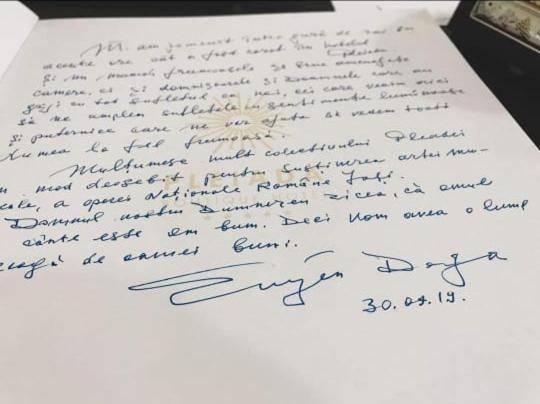 M. am pomenit într-o gură de rai în
aceste ore cât a fost cazat în hotelul
Pleiada
și nu numai frumusețe și bine amenajate
camere, ci și domnișoarele și Doamnele care au
grijă cu tot sufletul ca noi, cei care venim aici
să ne umplem sufletele în sentimente luminoase
și puternice care ne vor ajuta să vedem toată
lumea la fel frumoasă.
Mulțumesc mult colectivului Pleadei
în mod deosebit pentru susținerea artei mu-
cale, a operei Naționale Române Iași.
Domnul nostru Dumnezeu zicea, că omul
cânte este om bun. Deci vom avea o lume
treagă de oameni buni.
Eugen Doga
30.09.19.
PLEIADA